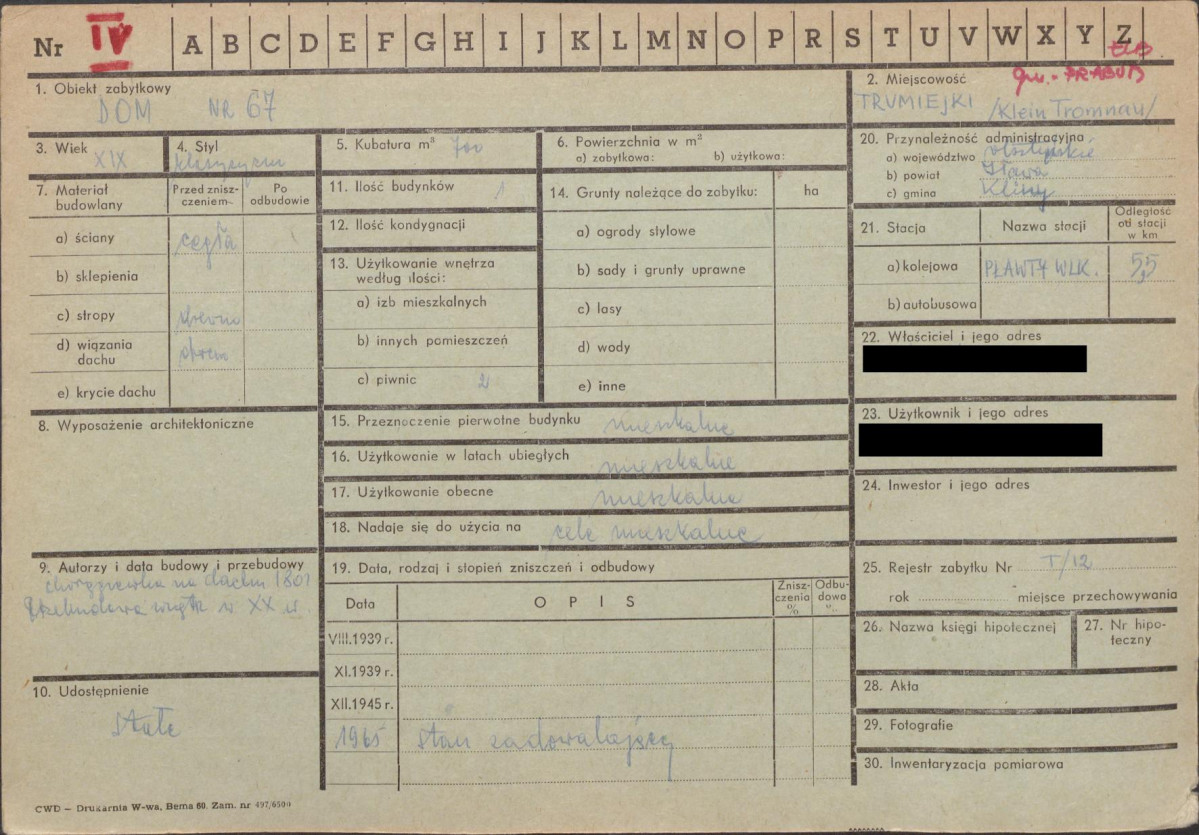 Nr IV A B C D E F G H I J K L M N O P R S T U V W X Y Z
gm. - PRABUTY
1. Obiekt zabytkowy
DOM NR 67
2. Miejscowość
TRUMIEJKI /Klein Tromnau/
3. Wiek
XIX
4. Styl
5. Kubatura m³ 700
6. Powierzchnia w m²
a) zabytkowa: b) użytkowa:
20. Przynależność administracyjna
a) województwo olsztyńskie
b) powiat Iława
c) gmina
7. Materiał budowlany
Przed znisz-
czeniem
Po
odbudowie
a) ściany cegła
b) sklepienia
c) stropy drewno
d) wiązania
dachu drewn
e) krycie dachu
11. Ilość budynków 1
12. Ilość kondygnacji
13. Użytkowanie wnętrza
według ilości:
a) izb mieszkalnych
b) innych pomieszczeń
c) piwnic 2
14. Grunty należące do zabytku: ha
a) ogrody stylowe
b) sady i grunty uprawne
c) lasy
d) wody
e) inne
21. Stacja Nazwa stacji
Odległość
od stacji
w km
a) kolejowa PŁAWTY WLK. 5,5
b) autobusowa
22. Właściciel i jego adres
23. Użytkownik i jego adres
24. Inwestor i jego adres
8. Wyposażenie architektoniczne
15. Przeznaczenie pierwotne budynku mieszkalne
16. Użytkowanie w latach ubiegłych mieszkalne
17. Użytkowanie obecne mieszkalne
18. Nadaje się do użycia na cele mieszkalne
9. Autorzy i data budowy i przebudowy
chorągiewka na dachu 1801
Przebudowa wnętrz w XX w.
19. Data, rodzaj i stopień zniszczeń i odbudowy
Data O P I S
Znisz-
czenia
%
Odbu-
dowa
VIII.1939 r.
XI.1939 r.
XII.1945 r.
1965 stan zadowalający
10. Udostępnienie
Stałe
25. Rejestr zabytku Nr T/12
rok miejsce przechowywania
26. Nazwa księgi hipotecznej
27. Nr hipo-
teczny
28. Akta
29. Fotografie
30. Inwentaryzacja pomiarowa
CWD — Drukarnia W-wa, Bema 60. Zam. nr 497/6500